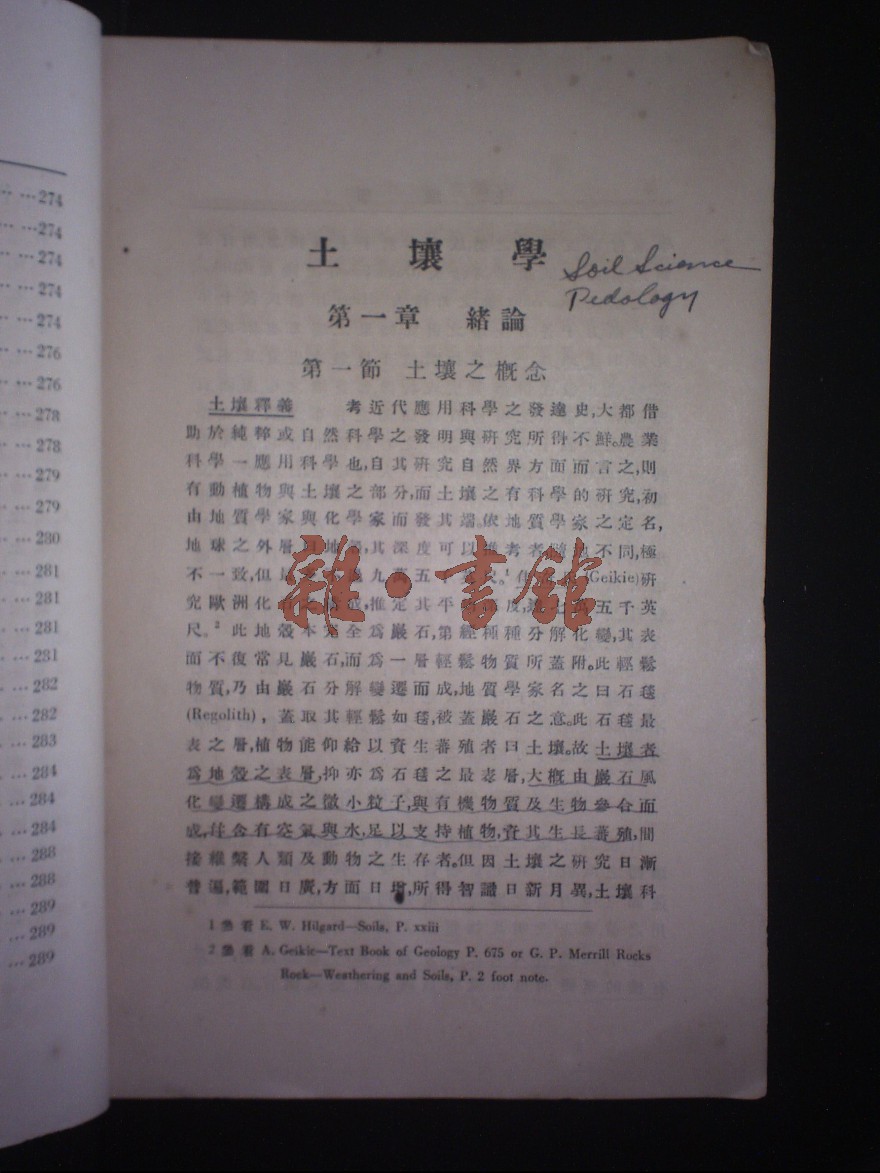 …274
…274
…274
…274
…274
…276
…276
…278
…278
…279
…279
…280
…281
…281
…281
…281
…282
…282
…283
…284
…284
…284
…288
…288
…289
…289
…289
土壤學
Soil Science
Pedology
第一章 緒論
第一節 土壤之概念
土壤釋義 考近代應用科學之發達史,大都借
助於純粹或自然科學之發明與研究所得不鮮。農業
科學一應用科學也,自其研究自然界方面而言之,則
有動植物與土壤之部分,而土壤之有科學的研究,初
由地質學家與化學家而發其端。依地質學家之定名,
地球之外層曰地,其深度可以考者,隨地不同,極
不一致,但九萬五(Geikie)研
究歐洲化推定其平七萬五千英
尺。2此地殼本完全為巖石,第經種種分解化變,其表
面不復常見巖石,而為一層輕鬆物質所蓋附。此輕鬆
物質,乃由巖石分解變遷而成,地質學家名之曰石毯
(Regolith),蓋取其輕鬆如毯,被蓋巖石之意。此石毯最
表之層,植物能仰給以資生蕃殖者曰土壤。故土壤者
為地殼之表層,抑亦為石毯之最表層,大概由巖石風
化變遷構成之微小粒子,與有機物質及生物參合而
成,幷含有空氣與水,足以支持植物,資其生長蕃殖,間
接維繫人類及動物之生存者。但因土壤之研究日漸
普遍,範圍日廣,方面日增,所得智識日新月異,土壤科
1 參看 E. W. Hilgard—Soils, P. xxiii
2 參看 A. Geikie—Text Book of Geology P. 675 or G. P. Merrill Rocks
Rock—Weathering and Soils, P. 2 foot note.
雜·書館